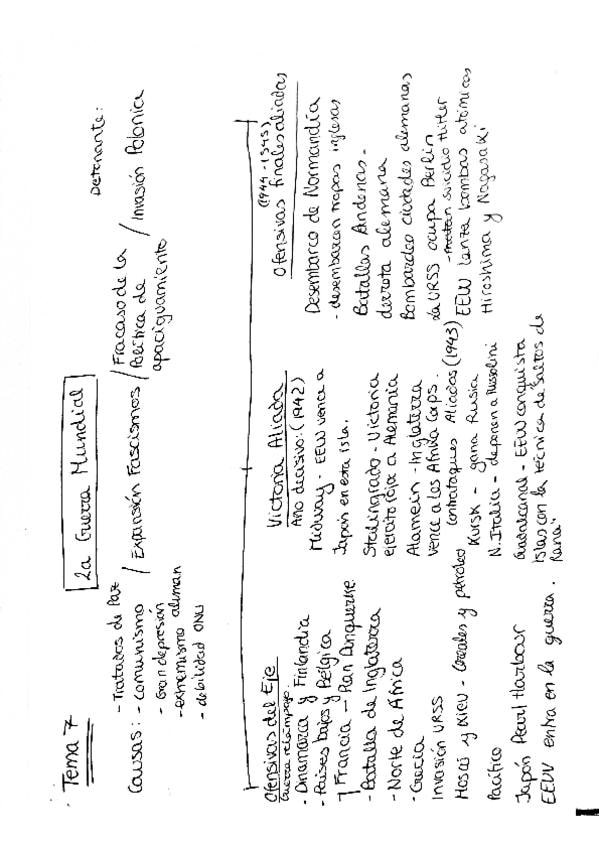 Tema 7
2a Guerra Mundial
Detonante:
- Tratados de Paz
Causas: - comunismo / Expansión Fascismos / Fracaso de la Política de apaciguamiento / Invasión Polonica
- Gran depresión
- extremismo aleman
- debilidad ONU
Ofensivas del Eje
Guerra relámpago.
- Dinamarca y Finlandia
- Paises bajos y Bélgica
Francia - Plan Dunquerke
- Batalla de Inglaterra
- Norte de África
- Grecia
Invasión URSS
Moscú y Kiev - cereales y petroleo
Pacífico
Japón Pearl Harbour
EEUU entra en la guerra.
Victoria Aliada
Año decisivo: (1942)
Midway - EEUU vence a
Japon en esta isla.
Stalingrado - Victoria
ejercito rojo a Alemania
Alamein - Inglaterra
vence a los Afrika Corps.
Contrataques Aliados (1943)
Kursk - gana Rusia
N. Italia - deponen a Mussolini
Guadalcanal - EEUU conquista
islas con la técnica de "saltos de
Rana"
(1944 - 1945)
Ofensivas finales aliadas
Desembarco de Normandía
- desembarcan tropas inglesas
Batallas Andenas -
derrota alemana
Bombardeo ciudades alemanas
La URSS ocupa Berlin
suicidio Hitler
EEUU lanza bombas atómicas
Hiroshima y Nagasaki